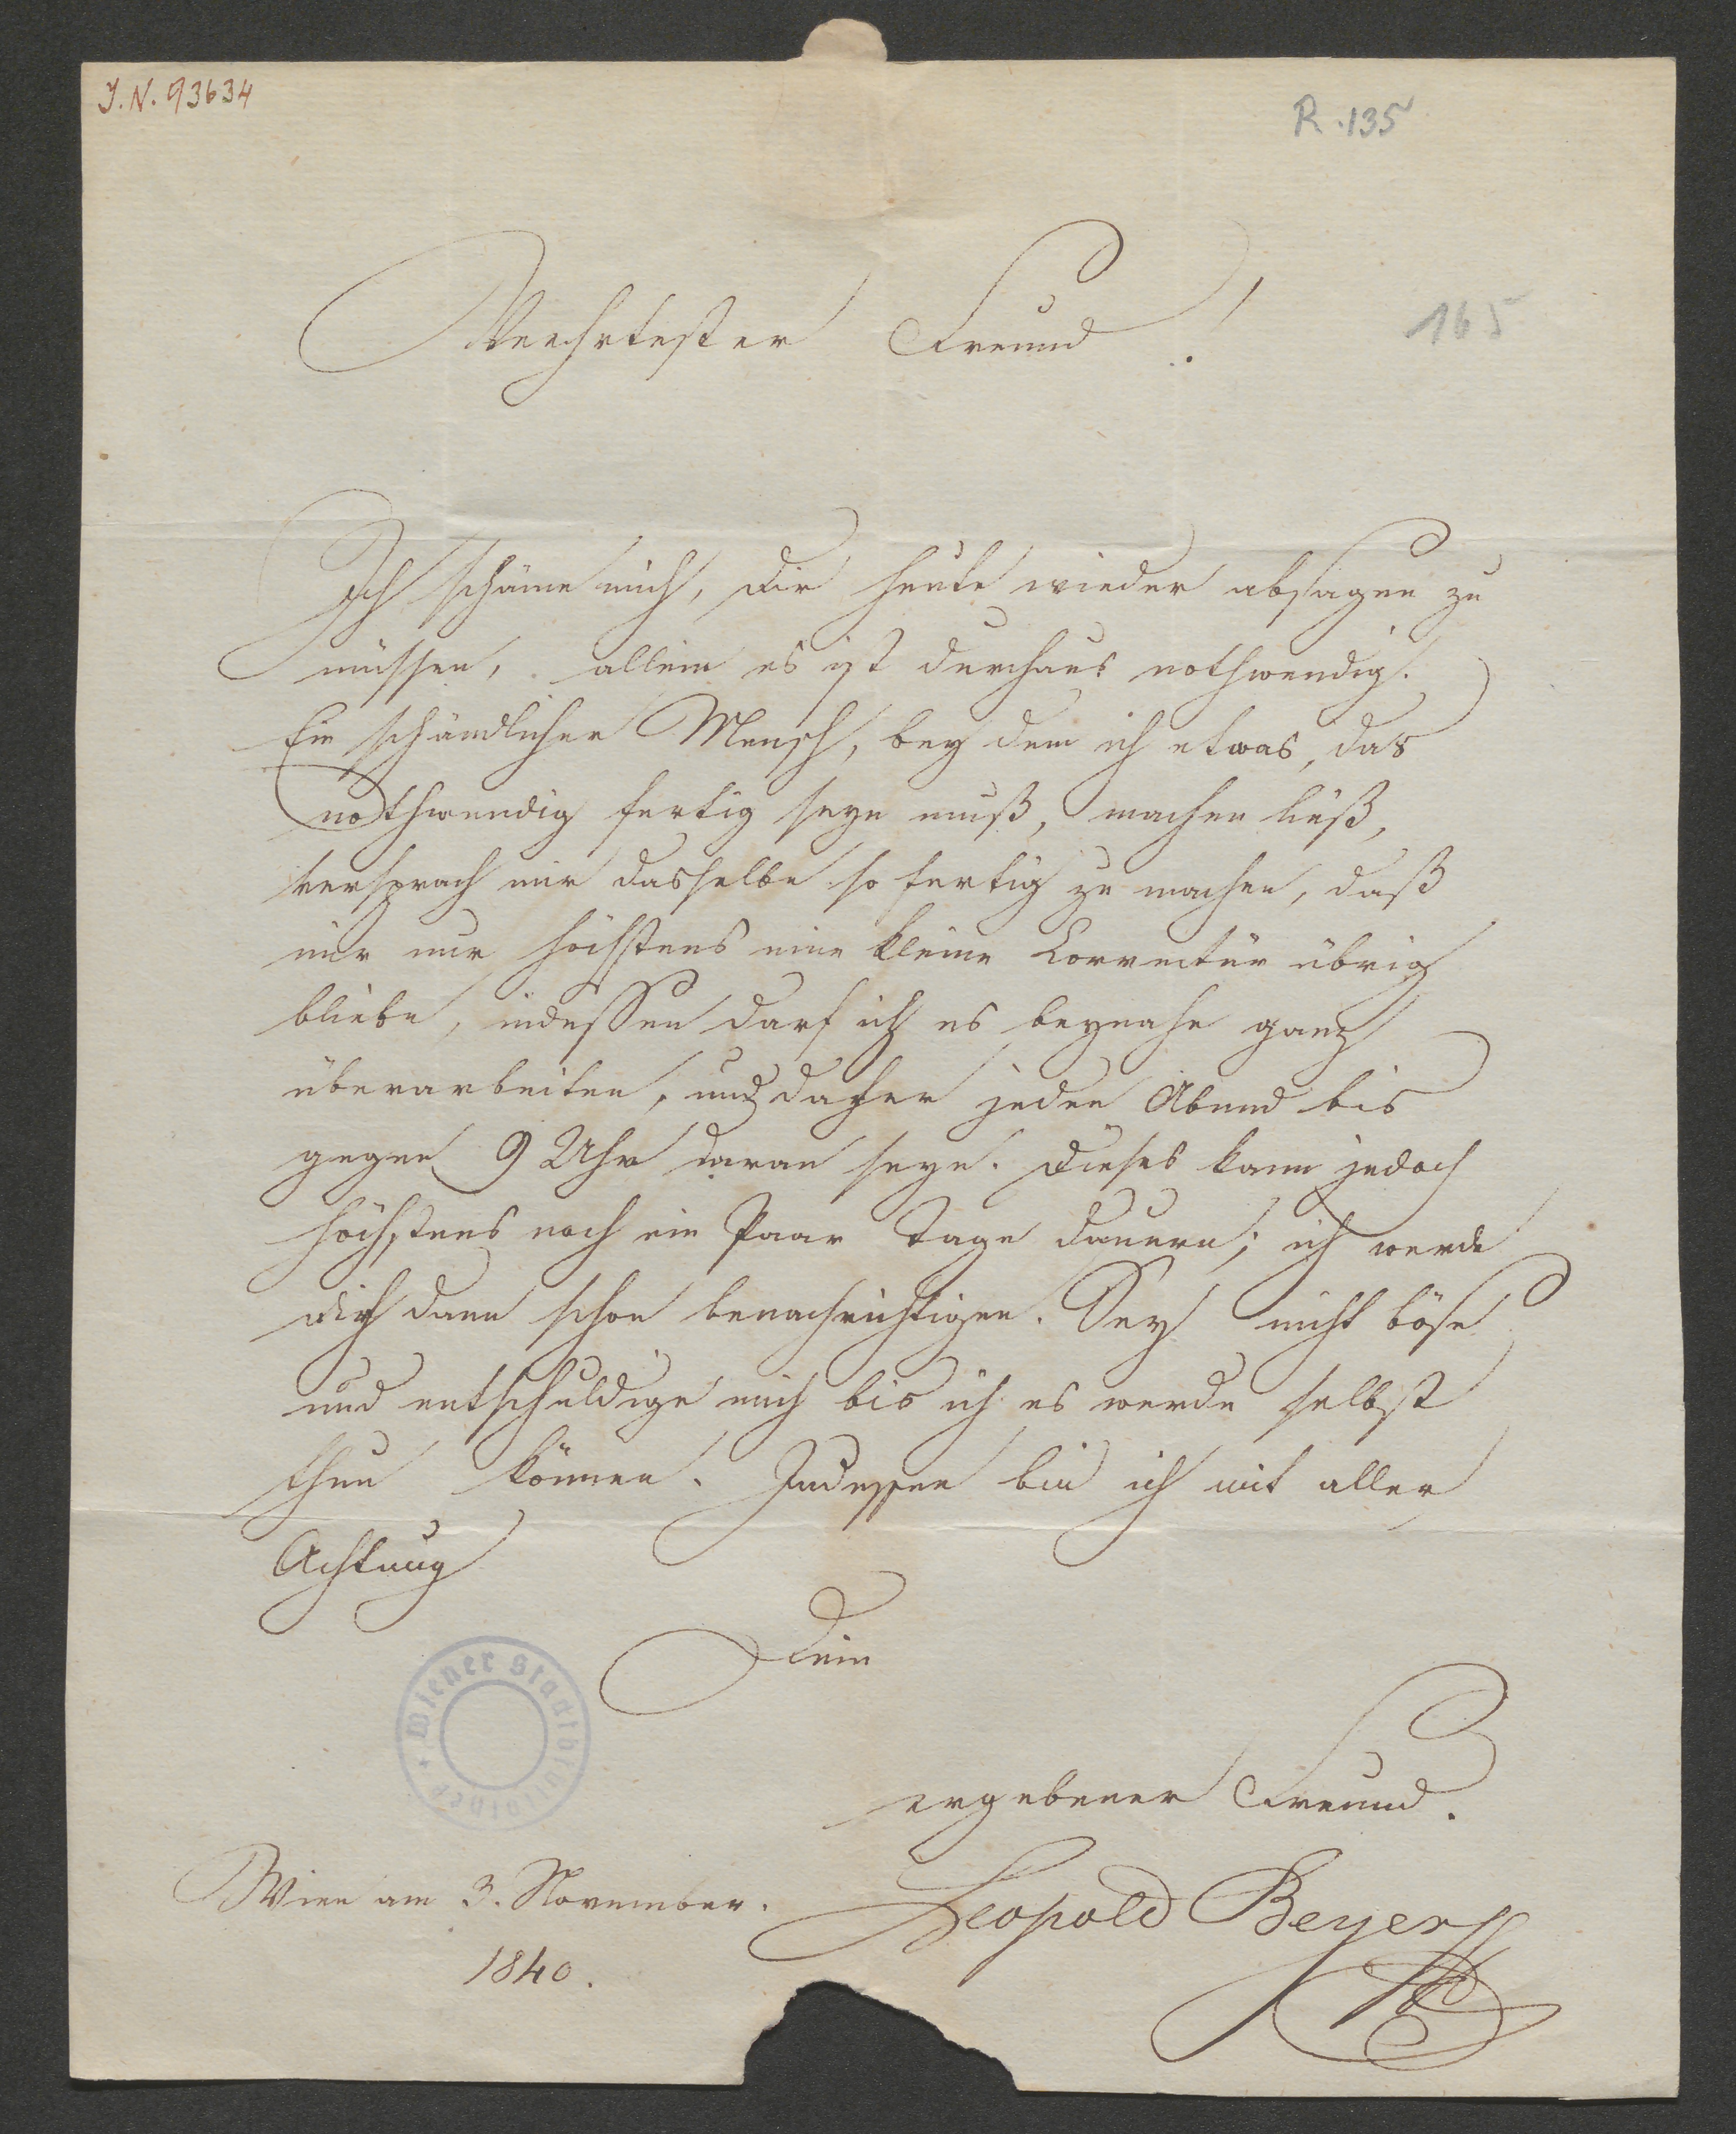 J. N. 93634
R. 135
Verehrtester Freund!
165
Ich schäme mich, Dir heute wieder absagen zu
müssen, allein es ist durchaus nothwendig.
Ein schändlicher Mensch, bey dem ich etwas, das
nothwendig fertig seyn muß, machen ließ,
versprach mir dasselbe so fertig zu machen, daß
mir nur höchstens eine kleine Correctur übrig
bliebe, indessen darf ich es beynahe ganz
überarbeiten, und daher jeden Abend bis
gegen 9 Uhr daran seyn. Dieses kann jedoch
höchstens noch ein Paar Tage dauern; ich werde
Dich dann schon benachrichtigen. Sey nicht böse
und entschuldige mich bis ich es werde selbst
thun können. Indessen bin ich mit aller
Achtung
Dein
Wiener Stadtbibliothek
ergebener Freund.
Wien am 3. November.
Leopold Beyer
1840.